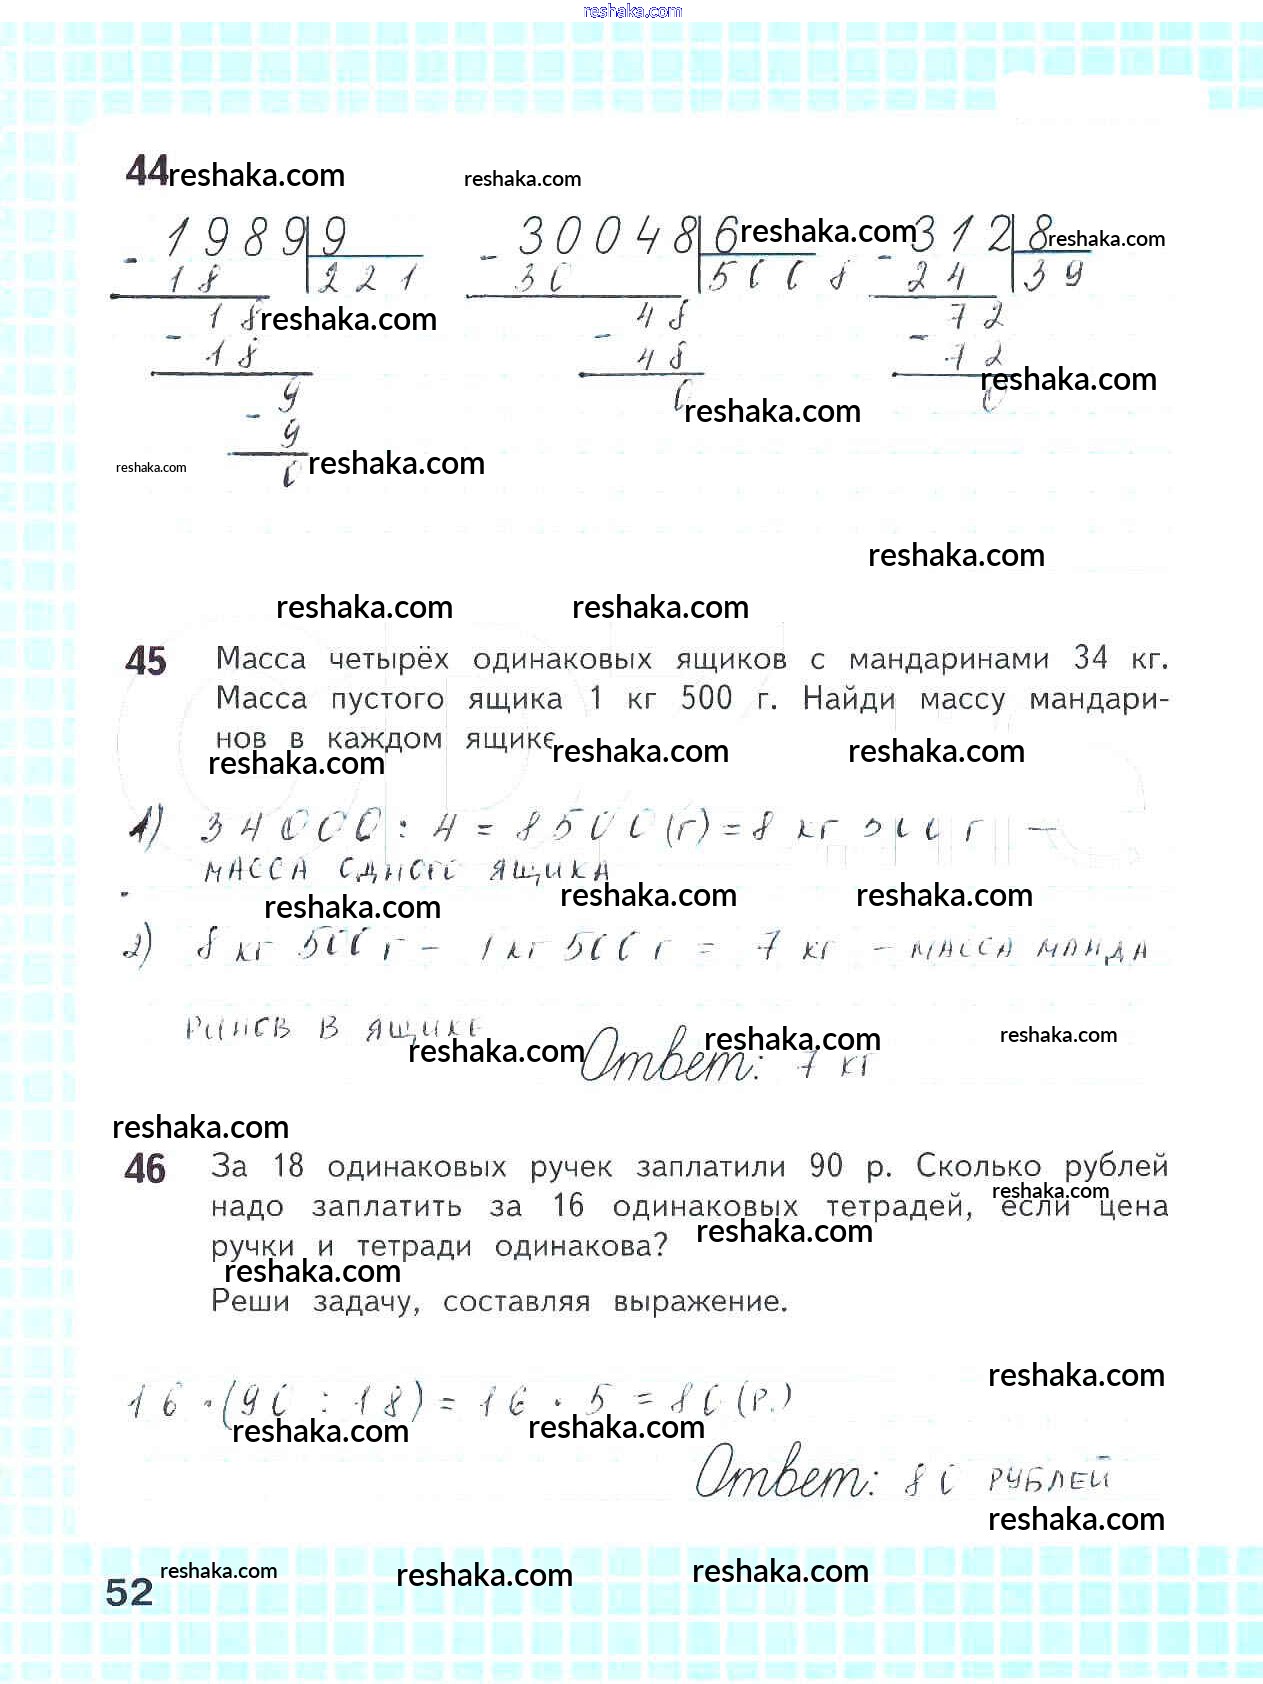 reshaka.com
44 reshaka.com reshaka.com
- 1989 | 9 - 30048 | 6 reshaka.com - 312 | 8 reshaka.com
18 221 30 5008 24 39
18 reshaka.com 48 72
- 18 - 48 - 72 reshaka.com
9 0 reshaka.com 0
- 9
reshaka.com 0 reshaka.com
reshaka.com
reshaka.com reshaka.com
45 Масса четырёх одинаковых ящиков с мандаринами 34 кг.
Масса пустого ящика 1 кг 500 г. Найди массу мандари-
нов в каждом ящике reshaka.com reshaka.com
reshaka.com
1) 34000 : 4 = 8500 (г) = 8 кг 500 г —
масса одного ящика
reshaka.com reshaka.com reshaka.com
2) 8 кг 500 г - 1 кг 500 г = 7 кг - масса манда
ринов в ящике
reshaka.com Ответ: reshaka.com 7 кг reshaka.com
reshaka.com
46 За 18 одинаковых ручек заплатили 90 р. Сколько рублей
reshaka.com
надо заплатить за 16 одинаковых тетрадей, если цена
reshaka.com
ручки и тетради одинакова?
reshaka.com
Реши задачу, составляя выражение.
reshaka.com
16 · (90 : 18) = 16 · 5 = 80 (р.)
reshaka.com reshaka.com
Ответ: 80 рублей
reshaka.com
52 reshaka.com reshaka.com reshaka.com